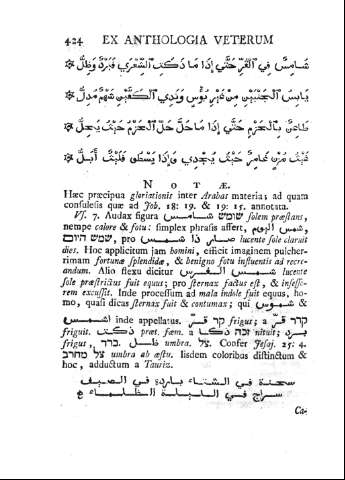 424 EX ANTHOLOGIA VETERUM
شَامِسٌ فِي القُرِّ حَتَّي إِذَا مَا ذَكَتِ الشِّعْرَي فَبَرْدٌ وَظِلُّ
يَابِسُ الجَنْبَيْنِ مِنْ غَيْرِ بُؤْسٍ وَنَدِي الكَفَّيْنِ شَهْمٌ مُدِلُّ
ظَاعِنٌ بِالحَزْمِ حَتَّي إِذَا مَا حَلَّ حَلَّ الحَزْمُ حَيْثُ يَحُلُّ
غَيْثُ مُزْنٍ غَامِرٌ حَيْثُ يُجْدِي وَإِذَا يَسْطُو فَلَيْثٌ أَبَلُّ
NOTÆ.
Hæc præcipua gloriationis inter Arabas materia; ad quam
consulesis quæ ad Job. 18: 19. & 19: 15. annotata.
Vs. 7. Audax figura שומש شامس solem præstans,
nempe calore & fotu: simplex phrasis affert, شمس اليوم
שמש היום, pro صار ذا شمس lucente sole claruit
dies. Hoc applicitum jam homini, efficit imaginem pulcher-
rimam fortunæ splendidæ, & benigno fotu influentis ad recre-
andum. Alio flexu dicitur شمس الفرس lucente
sole præstrictus fuit equus; pro sternax factus est, & insessio-
rem excussit. Inde processum ad mala indole fuit equus, ho-
mo, quasi dicas sternax fuit & contumax; qui شموس &
اشمس inde appellatus. קר قر frigus; a קרר قر
friguit. ذكت præt. fœm. a זכה ذكا nituit; برد
frigus, ברר. ظل umbra. צל. Confer Jesaj. 25: 4.
צל מחרב umbra ab æstu. Iisdem coloribus distinctum &
hoc, adductum a Tauriz.
سخنة في الشتاء باردة في الصيف
سراج في الليلة الظلماء
Ca-